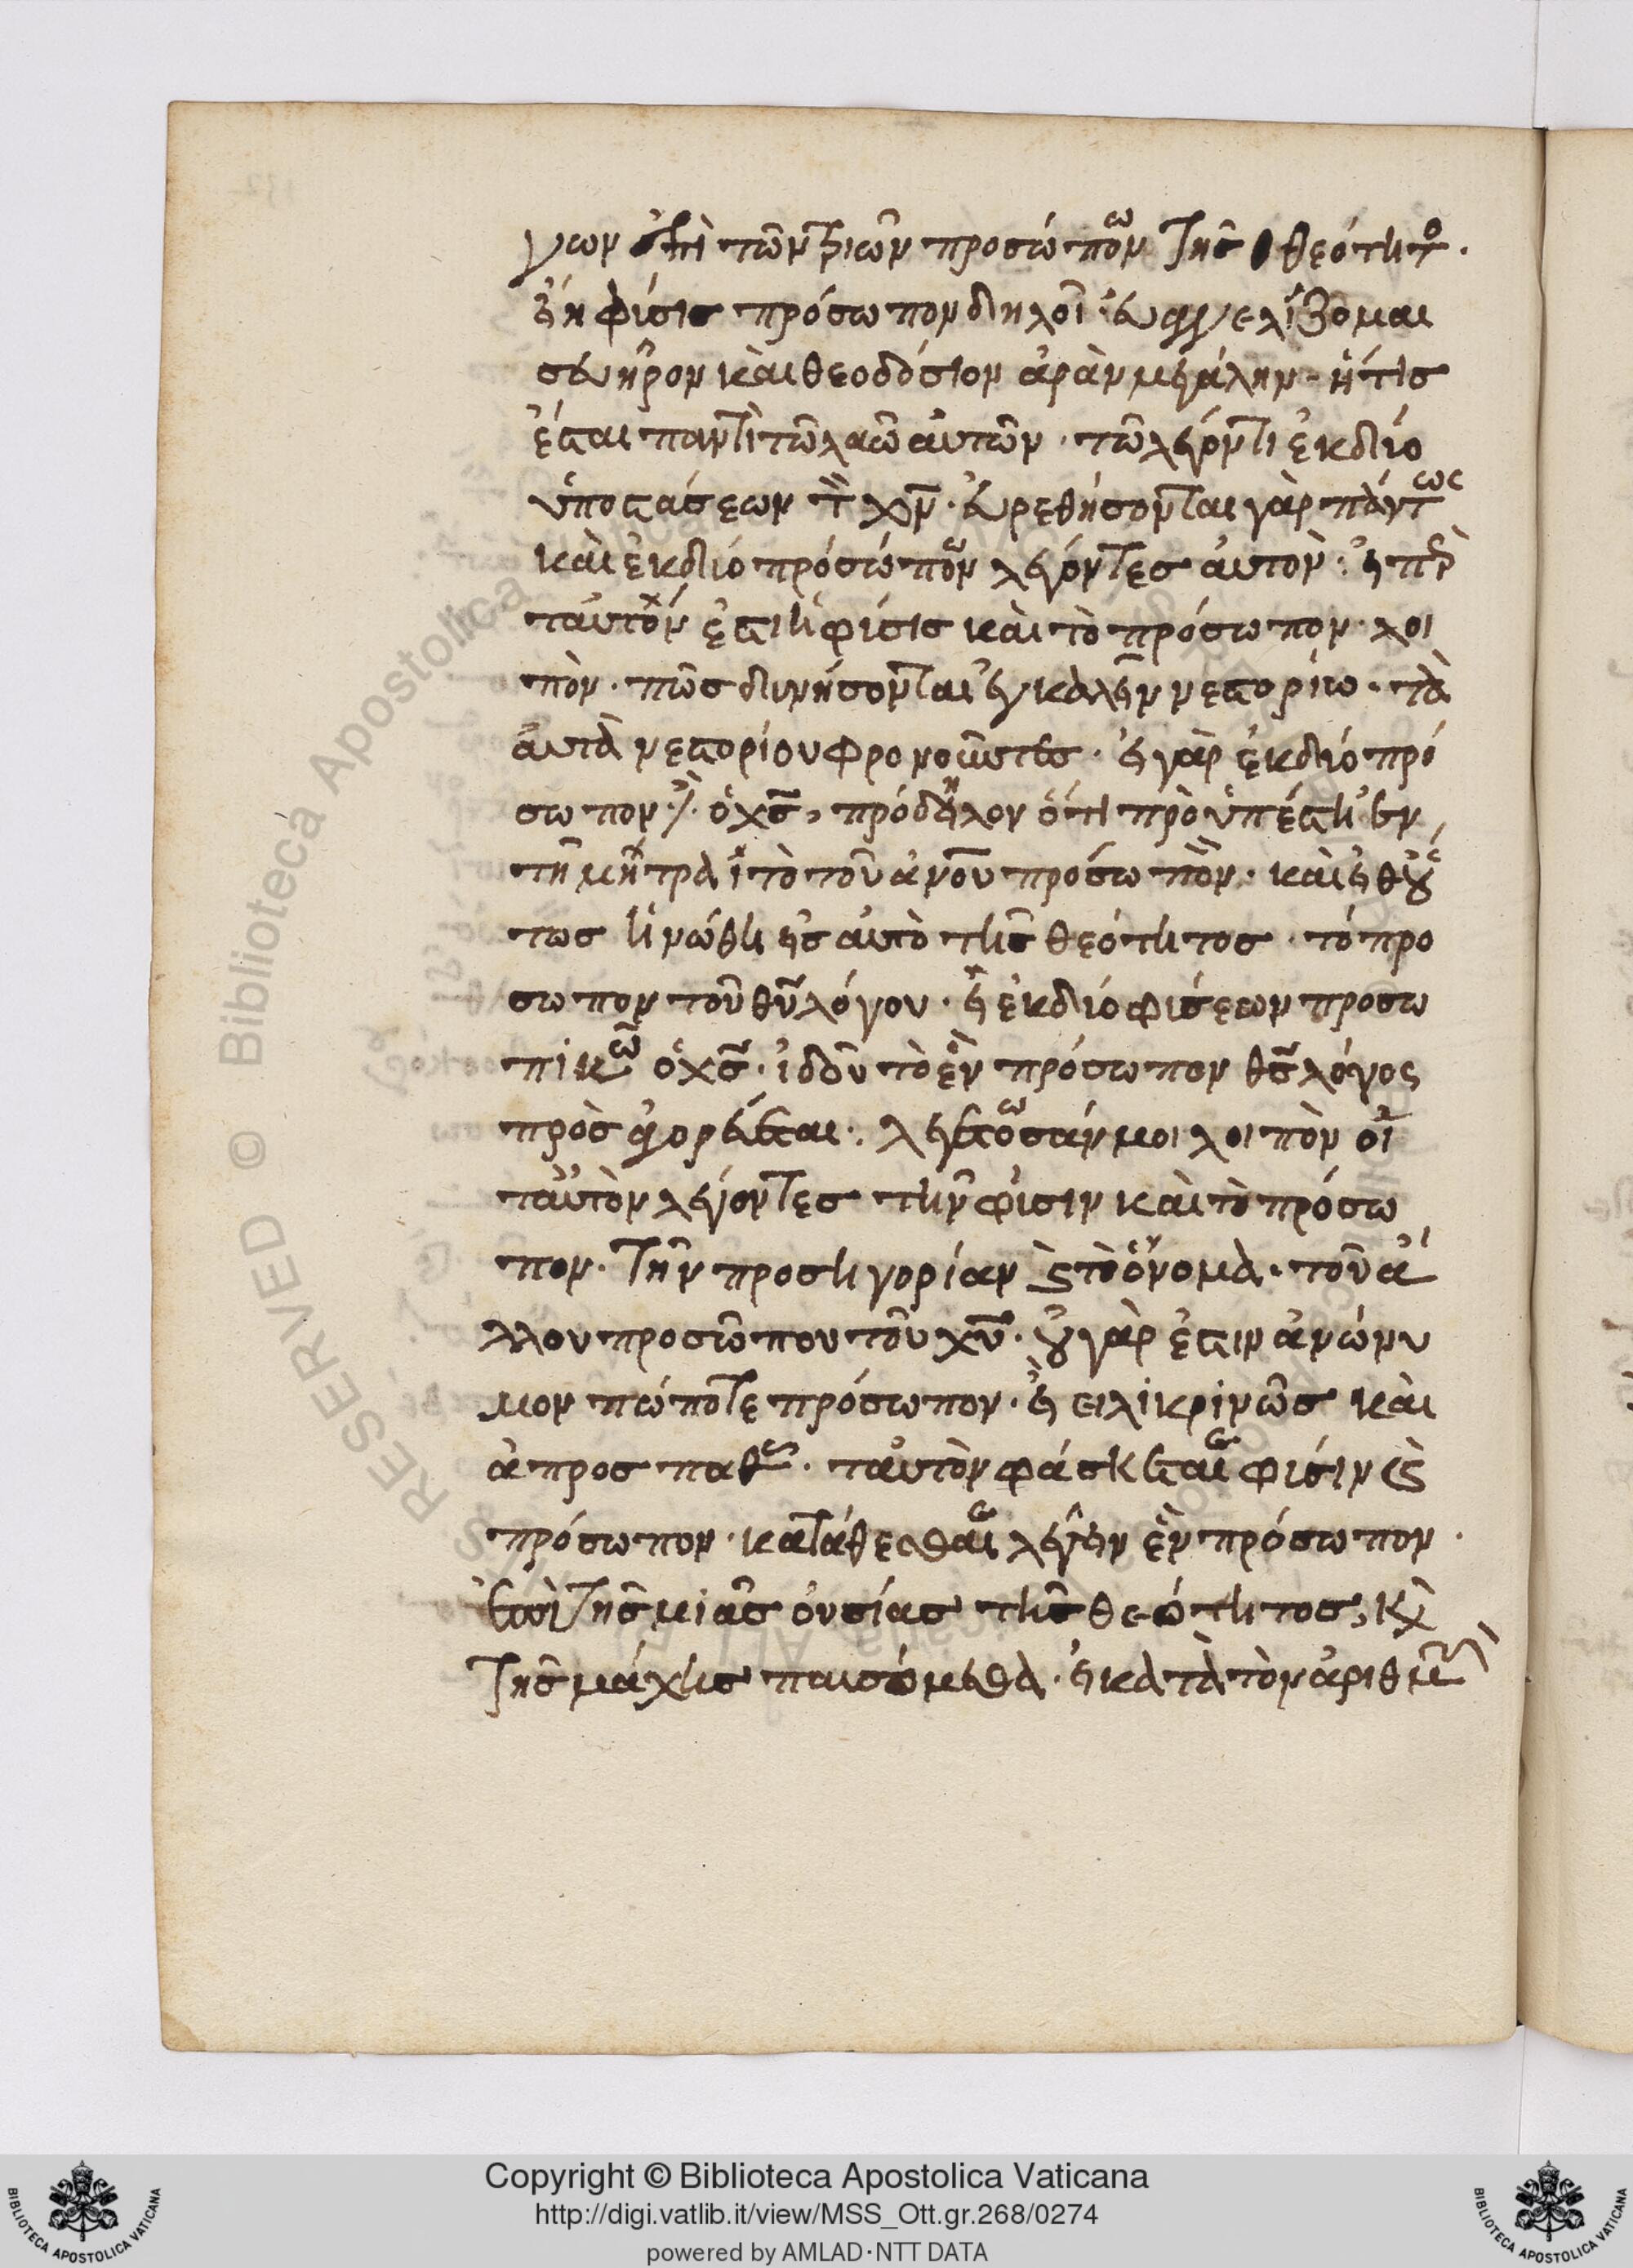 γων ἐπὶ τῶν τριῶν προσώπων τῆς θεότητο.
εἰ ἡ φύσις πρόσωπον δηλοῖ· εὐαγγελίζομαι
σευῆρον καὶ θεοδόσιον ἀρὰν μεγάλην· ἥτις
ἔσται παντὶ τῶ λαῶ αὐτῶν· τῶ λέγοντι ἐκ δύο
ὑποστάσεων τ χν· εὑρεθήσονται γὰρ πάντως
καὶ ἐκ δύο πρόσώπων λέγόντες αὐτὸν· εἰπὲρ
ταὐτόν ἐστι ἡ φύσις καὶ τὸ πρόσωπον· λοι
πὸν· πῶς δυνήσονται ἐγκαλεῖν νεστορίω· τὰ
αὐτὰ νεστορίου φρονοῦντες· εἰ γὰρ ἐκ δύο πρό
σωπον ὁ χς, πρόδηλον ὅτι πρὸυπέστι ἐν
τῆ μήτρα τὸ τοῦ ἀνου πρόσωπον· καὶ εἰθού
τως ἡνώθη εἰς αὐτὸ τῆς θεότητος· τό προ
σωπον τοῦ θυ λόγου· εἰ ἐκ δύο φύσεων προσω
πικῶ ὁ χς· ἰδοῦ τὸ ἓν πρόσωπον θς λόγος
πρὸσαγορεύεται· λεγέτωσάν μοι λοιπὸν οἱ
ταὐτὸν λέγοντες τὴν φύσιν καὶ τὸ πρόσω
πον· τὴν προσηγορίαν καὶ τὸ ὄνομα· τοῦ ἄ
λλου προσώπου τοῦ χυ· οὐ γὰρ ἐστιν ἀνώνυ
μον πώποτε πρόσωπον· εἰ ειλικρινῶς καὶ
ἀπροσπαθῶς· ταὐτὸν φάσκεται φύσιν καὶ
πρόσωπον· κατάθεσθαι λέγειν ἓν πρόσωπον·
ἐπὶ τῆς μιᾶς οὐσίας τῆς θεώτητος, καὶ
τῆς μάχης παυσόμεθα· εἰ κατὰ τὸν ἀριθμ